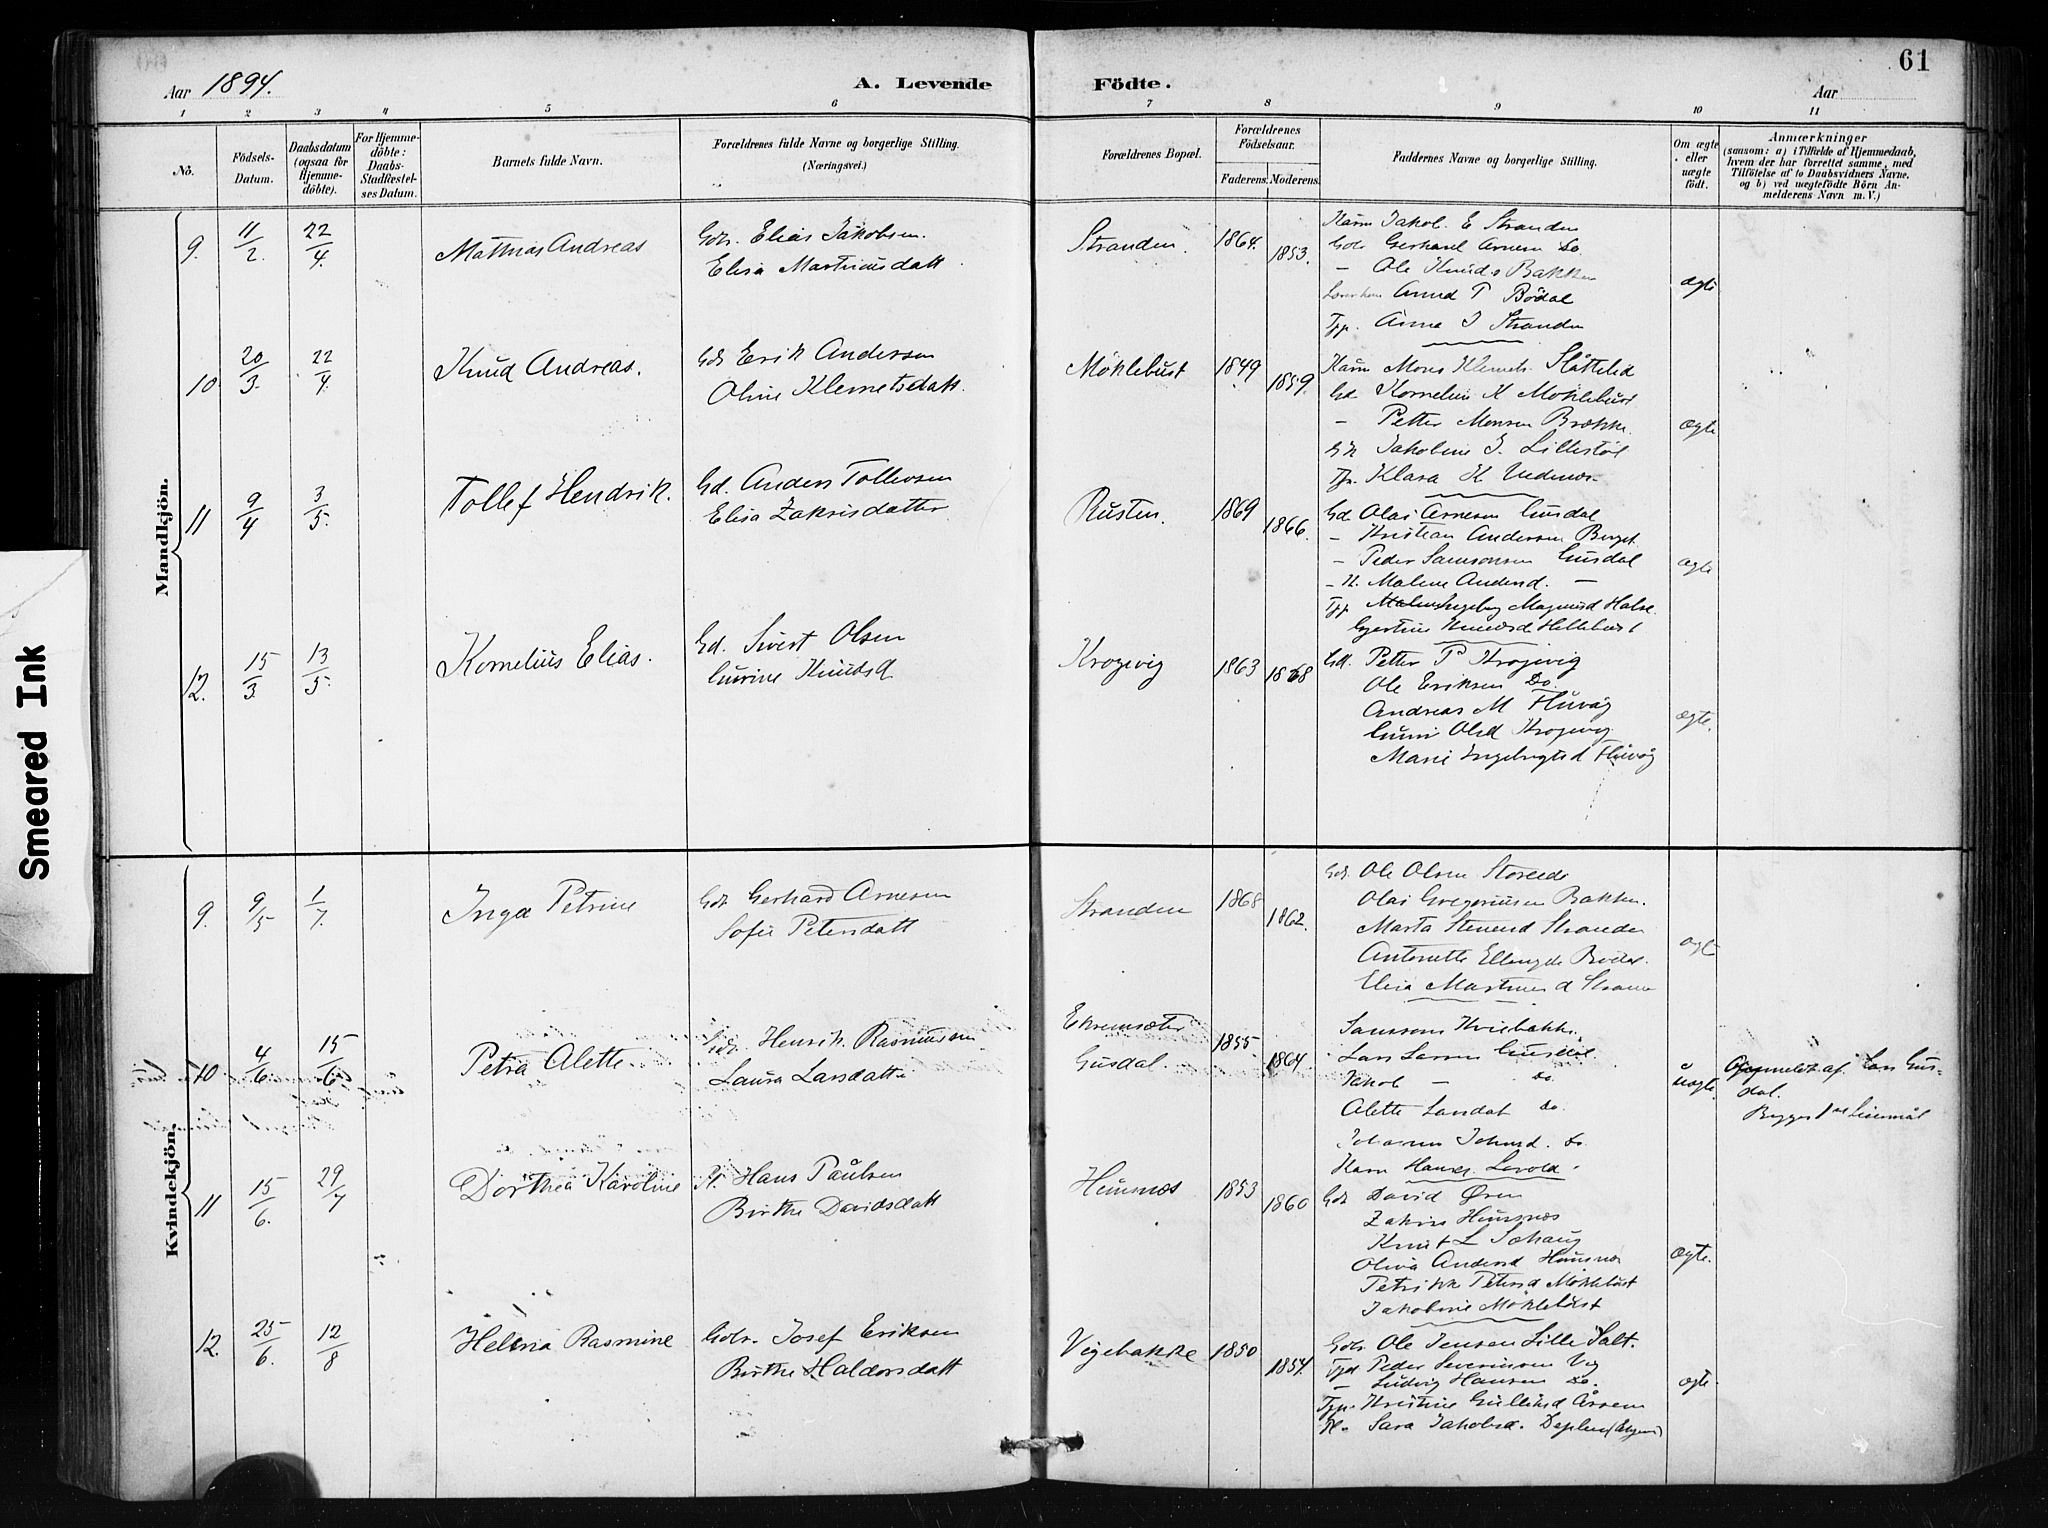 61
Aar 1894.
A. Levende Födte.
Aar
1 2 3 4 5 6 7 8 9 10 11
No.
Födsels-Datum.
Daabsdatum (ogsaa för Hjemme-döbte).
For Hjemme-döbte: Daabs-Stadfæstel-ses Datum.
Barnets fulde Navn.
Forældrenes fulde Navne og borgerlige Stilling. (Næringsvei.)
Forældrenes Bopæl.
Forældrenes Födselsaar.
Faderens. Moderens.
Faddernes Navne og borgerlige Stilling.
Om ægte eller uægte födt.
Anmærkninger
(saasom: a) i Tilfælde af Hjemmedaab, hvem der har forrettet samme, med Tilföielse af to Daabsvidners Navne. og b) ved uægtefödte Börn An-melderens Navn m. V.)
Smeared Ink
Mandkjön.
9. 11/2. 22/4. Mathias Andreas
Gdr. Elias Jakobsen.
Elisa Martinusdatt.
Stranden. 1864. 1853.
Kårm Jakob E Stranden
Gdr Gerhard Arnesen Do
- Ole Knuds Bakken
Arnd P Bödal
Tjp. Anna J Stranden
ægte
10 20/3. 22/4. Knud Andreas.
Gdr Erik Andersen
Oline Klemetsdatt.
Möklebust 1849 1859.
Kårm Mons Klemets. Slåttelid
Gd. Kornelius K Möklebust
- Petter Monsen Brække.
Gk Jakobine J. Lillestöl
Tjn. Klara K
ægte
11 9/4 3/5. Tollef Hendrik.
Gd. Anders Tollevsen
Elisa Zakrisdatter
Rusten. 1869 1866.
Gd. Olai Arnesen Gusdal
- Kristian Andersen Berget
- Peder Samsonsen Gusdal
- K. Malene Andersd. -
Tjp. Ingebog Magnusd Halse
Gjertine Hellebust
ægte
12. 15/3. 13/5. Kornelius Elias.
Gd. Sivert Olsen
Gurine Knudsd
Krogevig 1863 1868
Gd. Petter P Krogevig
Ole Eriksen Do
Andreas M Huvåg
Guri Olsd Krogevig
Marie Engebrigtsd Huvåg
ægte.
Kvindekjön.
9. 9/5 1/7. Inga Petrine
Gdr Gerhard Arnesen
Sofie Petersdatt
Stranden 1868 1862.
Gdr. Ole Olsen Storeide
Olai Gregoriusen Bakken.
Marta Stenersd Stranden
Antonette
Elisa Martinus d
ægte
10 4/6. 15/6. Petra Alette
Gdr. Henrik Rasmussen
Laura Larsdatte
Ekremsæter
Gusdal. 1855. 1864
Samsons Kviebakke.
Lars Larsen Gusdal.
Jakob - Do.
Alette Larsdat Do.
Johanne Johnsd. Do.
uægte
Opmeldt af Lars Gus-
dal.
Begges 1ste Leiermål
11 15/6. 29/7 Dorthea Karoline
Hans Paulsen
Birthe Davidsdatt
Heimnæs 1853 1860
Karn Hanses Lovold
Gdr David Øren
Zakris Heimnæs
Knut L Sohaug
Oliva Andersd
Petrikke Petersd Möklebust
Jakobine Möklebust
ægte.
12. 25/6. 12/8 Helena Rasmine
Gdr. Josef Eriksen
Birthe Haldorsdatt
Vigebakke 1850 1854.
Gdr. Ole Jensen Lille Salt.
Tjd Peder Severinsen Vig
- Ludvig Hansen Do.
Tjp. Kristine Gullaksd Åreem
Pl. Sara Jakobsd. Deplen
ægte.